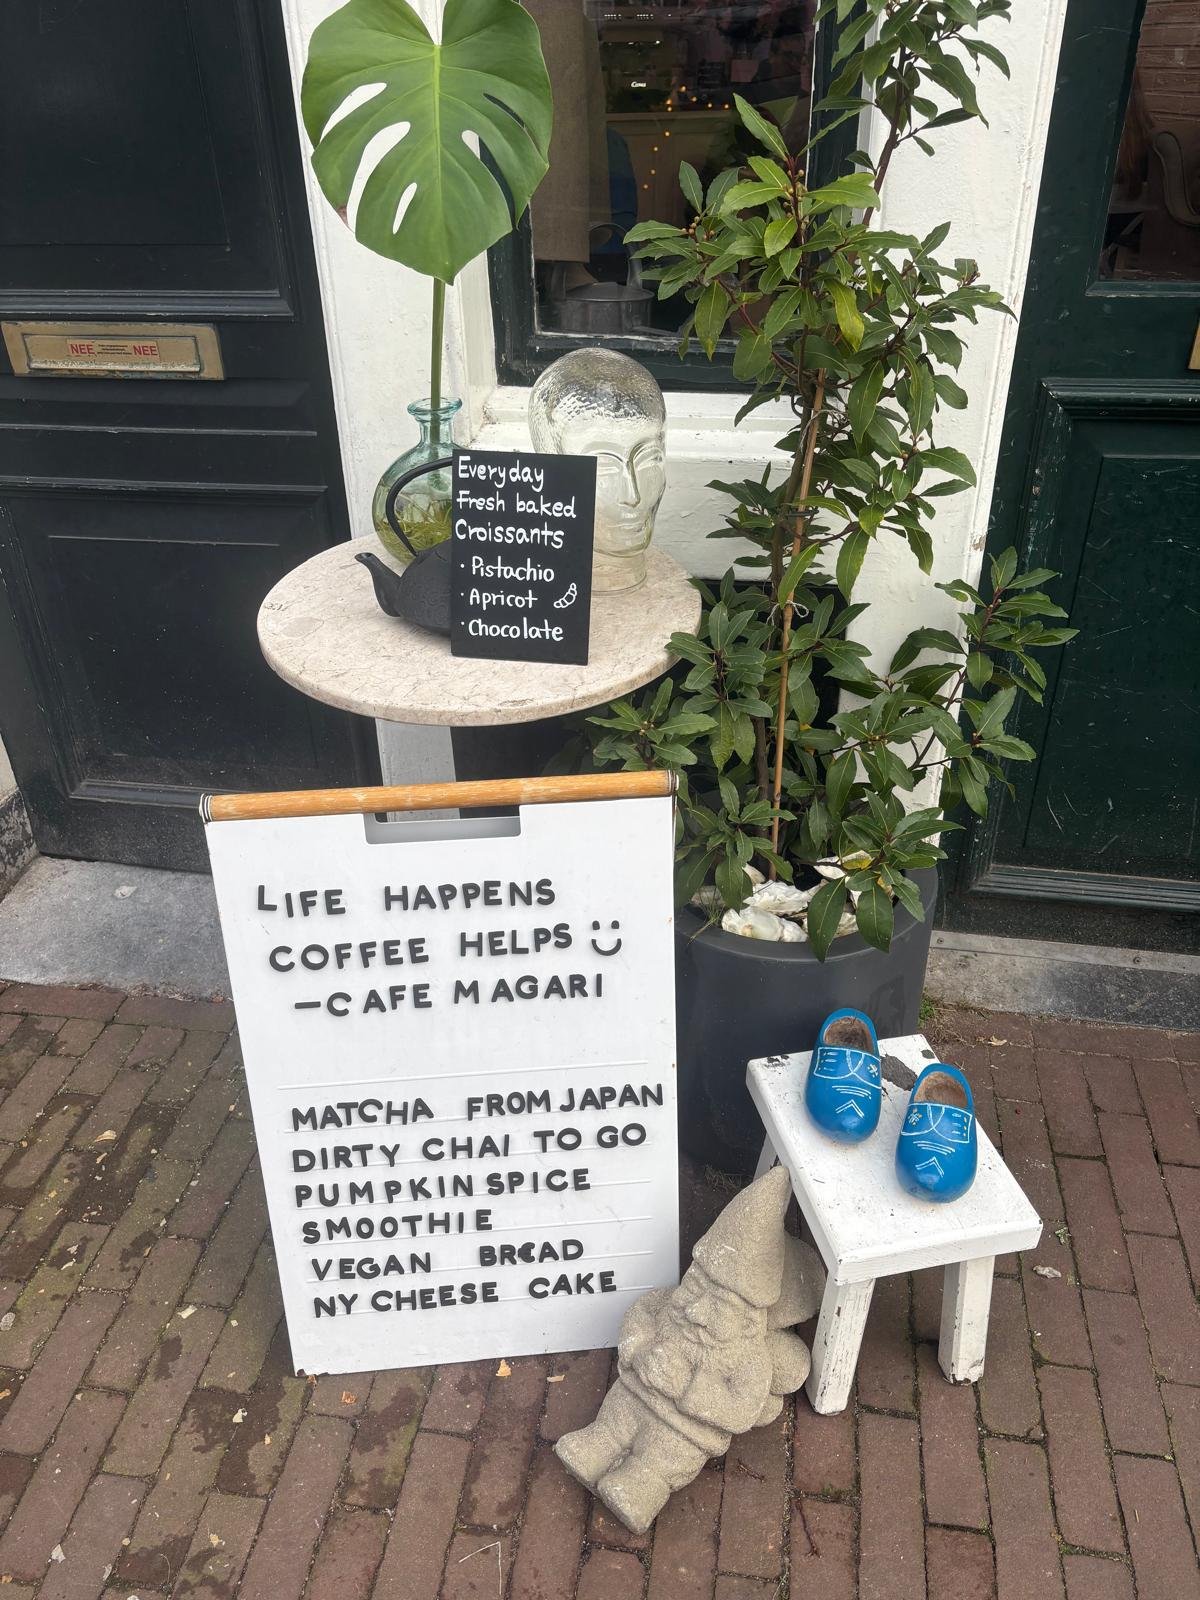 NEE NEE
Everyday
Fresh baked
Croissants
· Pistachio
· Apricot
· Chocolate
LIFE HAPPENS
COFFEE HELPS
–CAFE MAGARI
MATCHA FROM JAPAN
DIRTY CHAI TO GO
PUMPKIN SPICE
SMOOTHIE
VEGAN BREAD
NY CHEESE CAKE